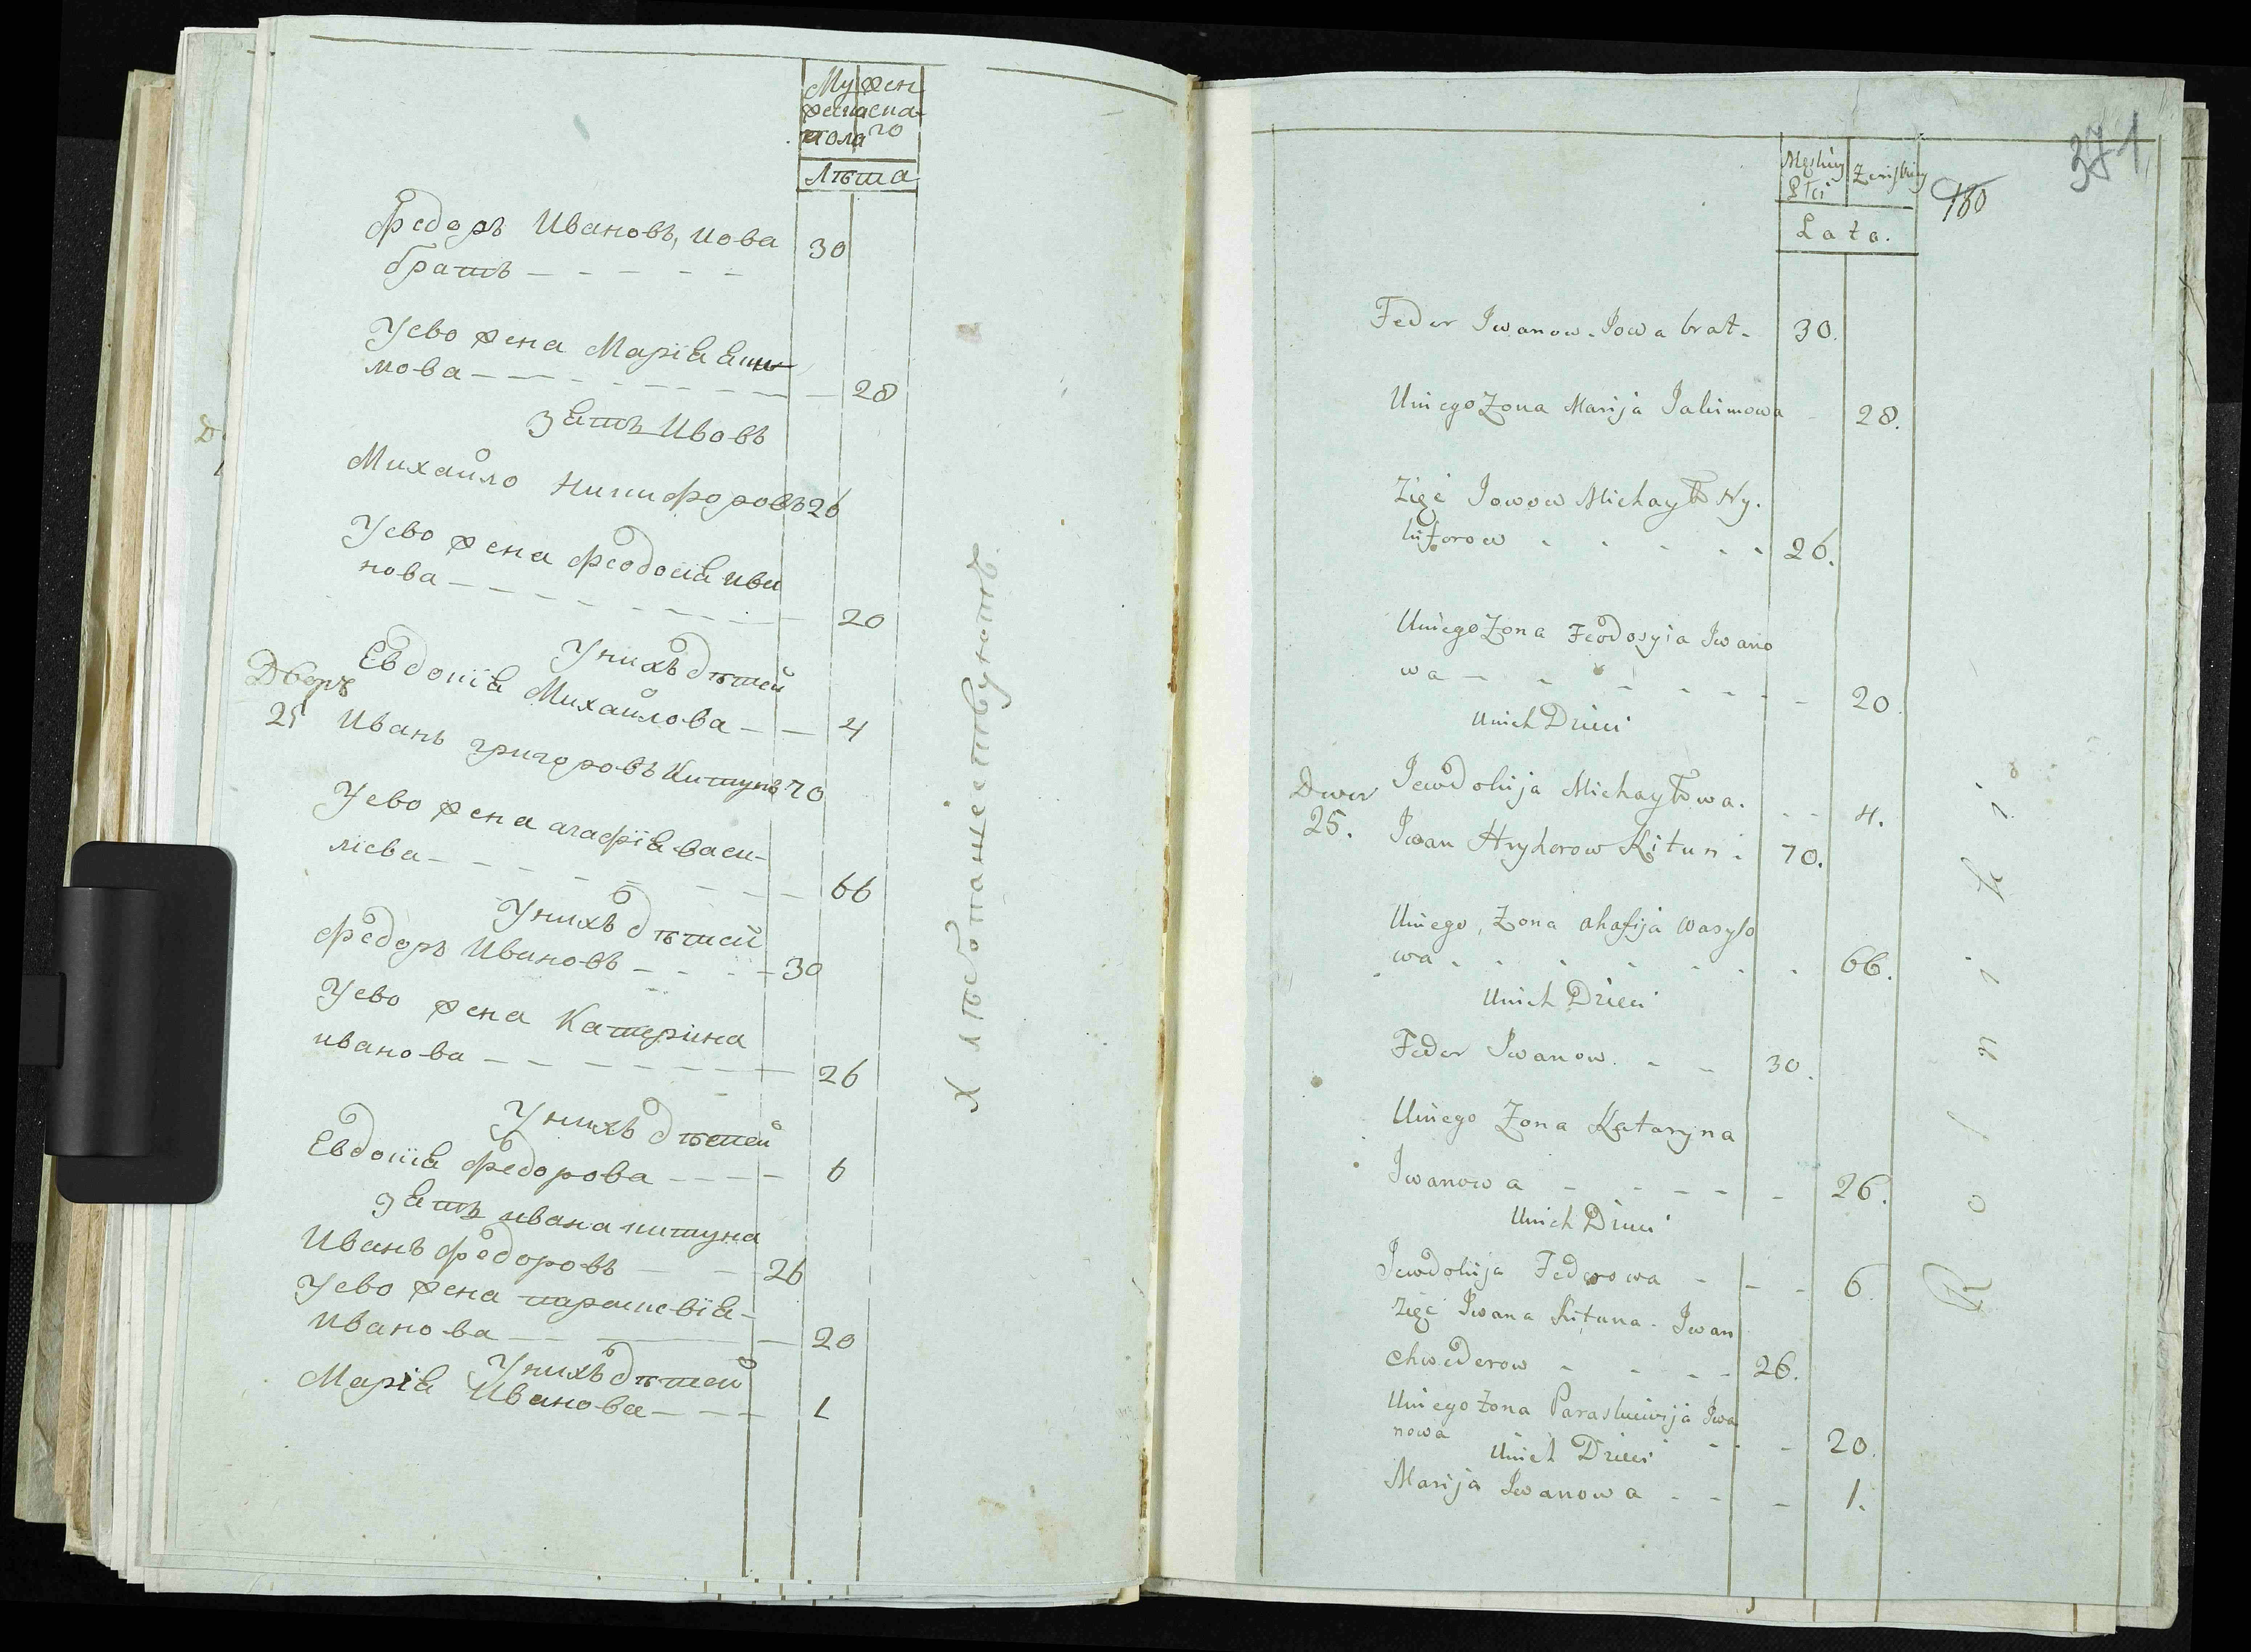 Му жен
жеска ска
пола го
Лѣта
Федоръ Ивановъ, Иова 30
братъ — — — — —
Уево жена Марія Яки
мова — — — — — — 28
зять Иовъ
Михайло Никифоровъ 26
Уево жена Феодосія Ива
нова — — — — — — 20
Унихъ дѣтей
Евдокія Михайлова — — 4
Дворъ
25 Иванъ григоровъ Китунъ 70
Уево жена агафія васи-
лієва — — — — — — 66
Унихъ дѣтей
Федоръ Ивановъ — — — — 30
Уево жена Катерина
иванова — — — — — — 26
Унихъ дѣтей
Евдокія Федорова — — — — 6
зять ивана китуна
Иванъ Федоровъ — — — 26
Уево жена параскевія
Иванова — — — — 20
Унихъ дѣтей
Марія Иванова — — — 1
Хлѣбопашествуютъ
371
180
Męskiey Żenskiey
Płci
Lata.
Feder Iwanow. Iowa brat. 30.
Uniego Żona Marija Jakimowa 28.
Zięć Iowow Michayło Ny.
kiforow . . . . . 26.
Uniego Żona Feodosyia Iwano
wa — — — — — — 20.
Unich Dzieci
Iewdokija Michayłowa. . . 4.
Dwor
25. Iwan Hryhorow Kitun . 70.
Uniego, Żona ahafija Wasylo
wa . . . . . . . 66.
Unich Dzieci
Feder Iwanow. — — 30.
Uniego Żona Kataryna
Iwanowa — — — — — 26.
Unich Dzieci
Iewdokija Federowa — — — 6.
Zięć Iwana Kituna. Iwan
Chwederow — — — — 26.
Uniego Żona Paraskiewija Iwa
nowa — — — 20.
Unich Dzieci
Marija Iwanowa — — — 1.
Rolniki